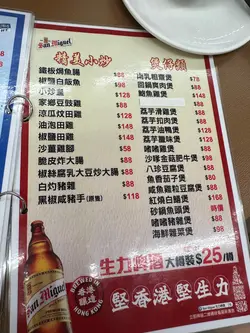 San Miguel
精美小炒
鐵板焗魚腸 $88
椒鹽白飯魚 $98
小炒皇 $88
家鄉豆豉雞 $88
涼瓜炆田雞 $118
油泡田雞 $118
椒鹽田雞 $118
沙薑雞腳 $58
脆皮炸大腸 $88
椒絲腐乳大豆炒大腸 $88
白灼豬雜 $88
黑椒咸豬手(原隻) $148
煲仔類
南乳粗齋煲
回鍋爽肉煲
鯪魚雞煲
荔芋滑雞煲
荔芋扣肉煲
荔芋油鴨煲
荔芋東風煲
荔芋臘味煲
沙嗲金菇肥牛煲 $98
八珍豆腐煲 $88
魚香茄子煲 $88
咸魚雞粒豆腐煲 $88
紅燒白鱔煲 $98
砂鍋魚頭煲 $88
啫啫雞煲
啫啫豬膶煲 $88
海鮮雜菜煲 $88
生力啤酒 大樽裝 $25/樽
San Miguel
香港釀造
HONG KONG
堅香港 堅生力